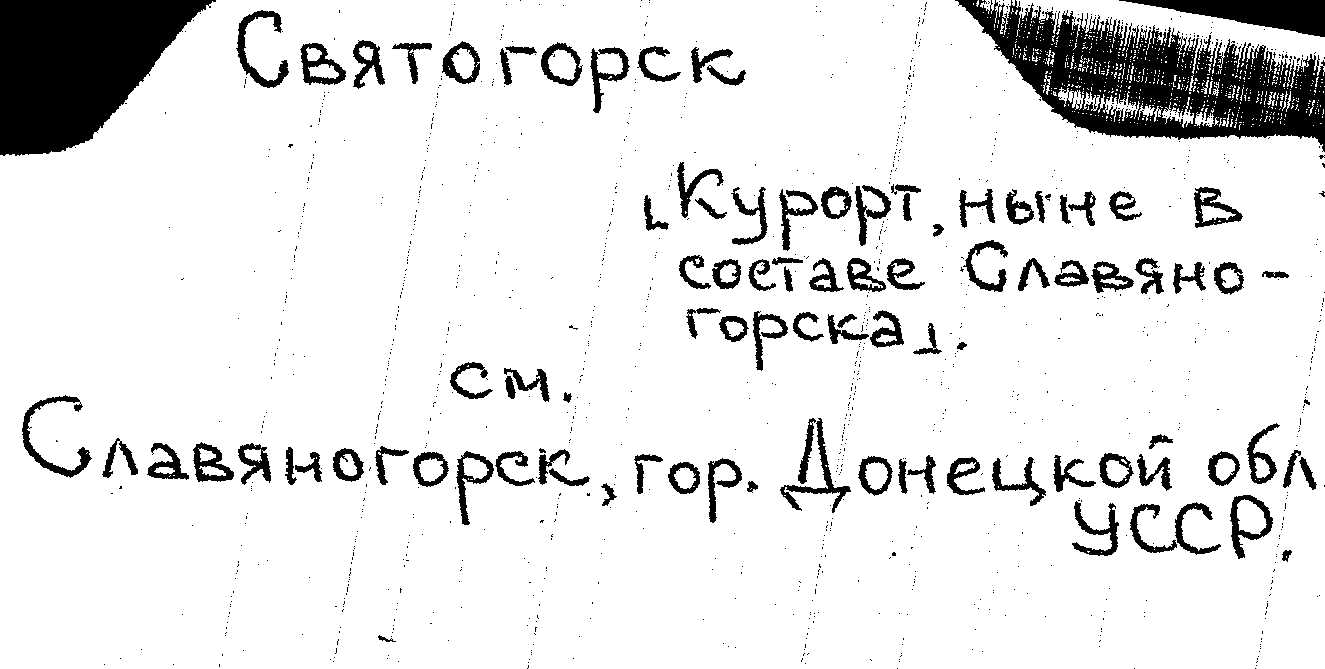 Святогорск
⌞Курорт, ныне в
составе Славяно-
горска⌟.
см.
Славяногорск, гор. Донецкой обл
УССР.